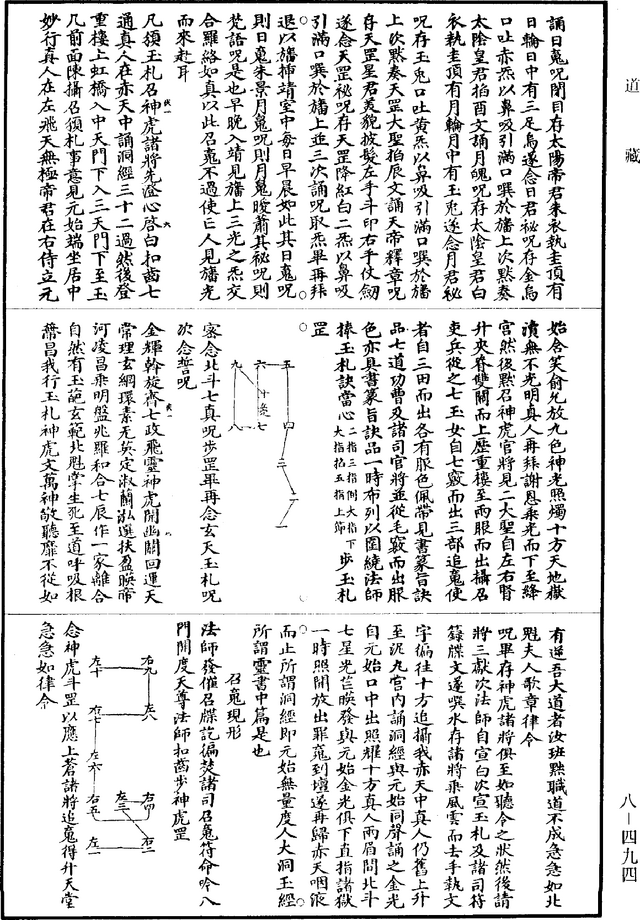 道藏
誦日䰟呪閉目存太陽帝君朱衣執圭頂有
日輪日中有三足烏遂念日君秘呪存金烏
口吐赤炁以鼻吸引滿口噀於旛上次黙奏
太陰皇君掐酉文誦月魄呪存太陰皇君白
衣執圭頂有月輪月中有玉兎遂念月君秘
呪存玉兎口吐黃炁以鼻吸引滿口噀於旛
上次黙奏天罡大聖掐辰文誦天帝釋章呪
存天罡星君美貌披髮左手斗印右手仗劒
遂念天罡秘呪存天罡降紅白二炁以鼻吸
引滿口噀於旛上並三次誦呪取炁畢再拜
退以旛揷靖室中每日早晨如此其日䰟呪
則日䰟朱景月䰟呪則月䰟曖蕭其秘呪則
梵語呪是也早晚入靖見旛上三光之炁交
合羅絡如真以此召䰟不過使亡人見旛光
而來赴耳
凡領玉札召神虎諸將先澄心啓白扣齒七
通真人在赤天中誦洞經三十二過然後登
重樓上虹橋入中天門下入三天門下至玉
几前面陳攝召領札事意見元始端坐居中
妙行真人在左飛天無極帝君在右侍立元
始念笑俞允放九色神光照燭十方天地獄
瀆無不光明真人再拜謝恩乘光而下至絳
宫然後黙召神虎官將見二大聖自左右腎
升夾脊雙關而上歷重樓至兩眼而出攝召
吏兵從之七玉女自七竅而出三部追䰟使
者自三田而出各有服色佩帶見書篆旨訣
品七道功曹及諸司官將並從毛竅而出服
色亦具書篆旨訣品一時布列以圍繞法師
捧玉札訣當心二指三指側大指下大指掐五指上節步玉札
罡
一
二
三
四
五
六
七
八
九
密念北斗七真呪步罡畢再念玄天玉札呪
次念誓呪
金輝斡旋齊七政飛靈神虎開幽關回運天
常理玄綱環素无英定淑蕳泓選扶盈暎帝
河凌昌乘明盤兆羅和合七辰作一家離合
自然有玉範玄範北魁掌生死至道呼吸根
蕭昌我行玉札神虎文萬神敬聽靡不從如
有逆吾大道者汝班黜職道不成急急如北
魁夫人歌章律令
呪畢存神虎諸將俱至如聽令之狀然後請
將三獻次法師自宣白次宣玉札及諸司符
籙牒文遂噀水存諸將乘風雲而去手執文
字徧往十方追攝我赤天中真人仍舊上升
至泥丸宫内誦洞經與元始同聲誦之金光
自元始口中出照耀十方真人兩眉間北斗
七星光芒暎發與元始金光俱下直指諸獄
一時照開放出罪䰟到壇遂再歸赤天咽液
而止所謂洞經即元始無量度人大洞玉經
所謂靈書中篇是也
召䰟現形
法師發催召牒訖徧焚諸司召䰟符命吟八
門開度天尊法師扣齒步神虎罡
右一
左一
左三
右四
右五
左六
右七
左八
右九
左十
念神虎斗罡以應上蒼諸將追䰟得升天堂
急急如律令
八－四九四